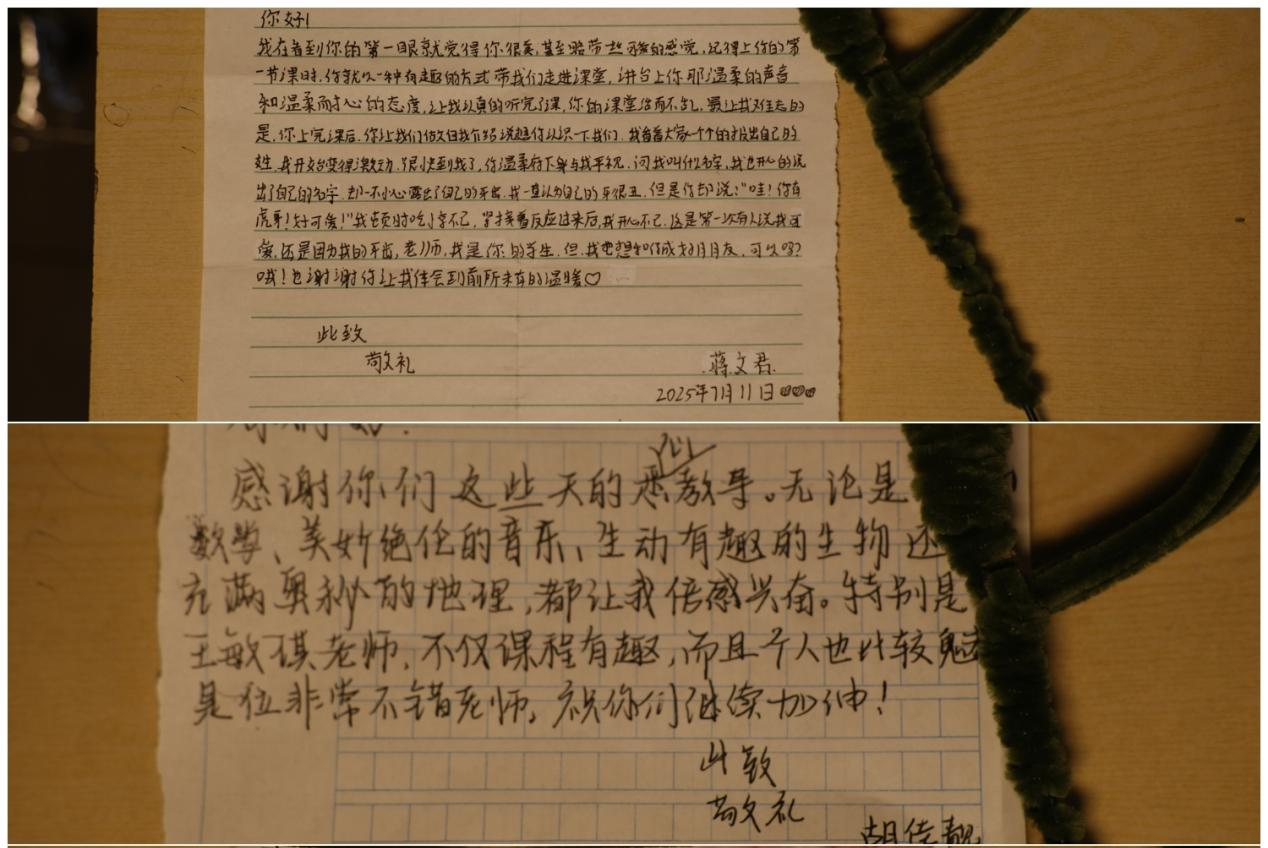 你好!
我在看到你的第一眼就觉得你很美,甚至略带一些可爱的感觉,记得上你的第
一节课时,你就以一种有趣的方式带我们走进课堂,讲台上你那温柔的声音
和温柔而耐心的态度,让我认真的听完了课,你的课堂活而不乱,最让我难忘的
是,你上完课后,你让我们做自我介绍说想你认识一下我们,我看着大家一个个的报出自己的
姓,我开始变得激动,很快到我了,你温柔的俯下身与我平视,问我叫什么名字,我也开心的说
出了自己的名字,却一不小心露出了自己的牙齿,我一直认为自己的牙很丑,但是你却说:"哇!你有
虎牙!好可爱!"我顿时吃惊不已,紧接着反应过来后,我开心不已,这是第一次有人说我可
爱,还是因为我的牙齿,老师,我是你的学生,但,我也想和你成为好朋友,可以吗?
哦!也谢谢你让我体会到前所未有的温暖♡
此致
敬礼
蒋文君
2025年7月11日
感谢你们这些天的悉心教导。无论是
数学、美妙绝伦的音乐、生动有趣的生物还
充满奥秘的地理,都让我倍感兴奋。特别是
王敏琪老师,不仅课程有趣,而且个人也比较魅
是位非常不错老师,祝你们继续加油!
此致
敬礼
胡佳靓